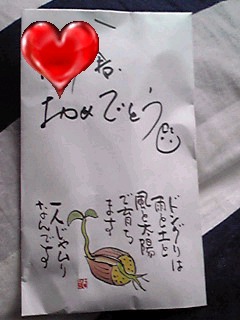 おめでとう
ドングリは
雨と土と
風と太陽
で育ち
ます
一人じゃムリ
なんです